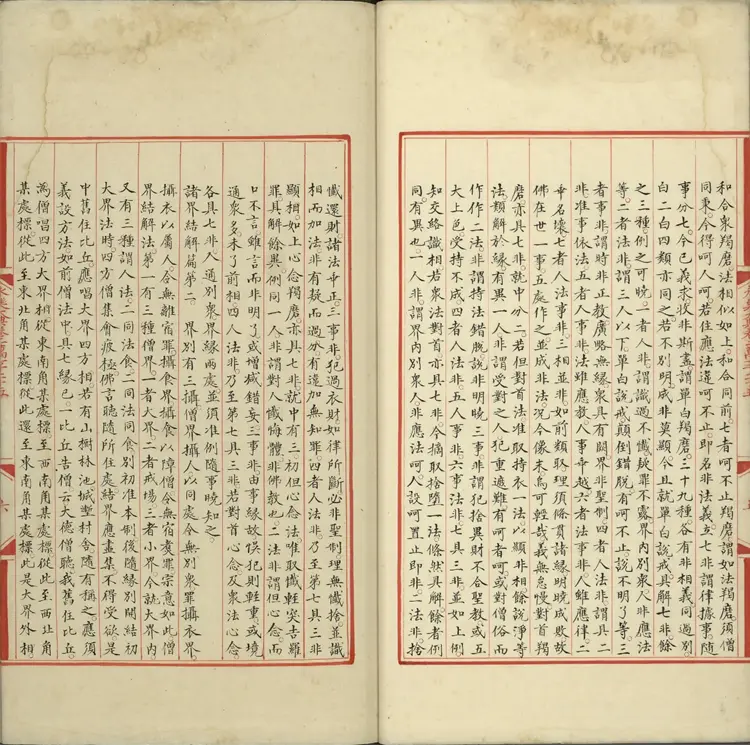 和合衆羯磨法相似如上。和合同前。七者呵不止羯磨。謂如法羯磨須僧
同秉。今得呵人呵。若住應法。違呵不止。即名非法。義立七非。謂律據事隨
事分七。今已義求收非斯盡。謂單白羯磨。三十九種。各有非相。義同過別。
白二白四類亦同之。若不別明。成非莫顯。今且就單白說戒。具解七非。餘
之三種。例之可曉。一者人非。謂識過不懺。疑罪不露。界內別衆。人非應法
等。二者法非。謂三人以下單白說戒。顛倒錯脫。有呵不止。說不明了等。三
者事非。謂時非正教。廣略無緣。衆具有闕。界非聖制。四者人法非。謂具二
非。准事依法。五者人事非。法雖應教。人事乖越。六者法事非。人雖應律。二
並名壞。七者人法事非。三相並非。如前類取。理須條貫諸緣。明曉成敗。故
佛在世。一事五處作之。並成非法。況今像末。焉可輕哉。義無怠慢。對首羯
磨。亦具七非。就中分二。若但對首法。准取持衣一法。以顯非相。餘說淨等
法。類解於緣有異。一人非。謂受對之人。犯重遮難。有呵者呵。或對僧俗而
作。二法非。謂持法錯脫。說非明曉。三事非。謂犯捨異財。不合聖教。或五
大上色。受持不成。四者人法非。五人事非。六事法非。七具三非。並如上例
知。交絡識相。若衆法對首。亦具七非。今摘取捨墮一法。條然具解。餘者例
同有異也。一人非。謂界內別衆。人非應法。呵人設呵。置止即非。二法非。捨
懺還財諸法中正。三事非。犯過衣財。如律所斷。必非聖制。理無懺捨。並識
相而加法。非有疑而過分。有違加無知罪。四者人法非。乃至第七具三非。
顯相如上。心念羯磨。亦具七非。就中有三。初但心念法。唯取懺輕突吉羅
罪。具解餘異例同。一人非。謂對人懺悔。體非佛教也。二法非。謂但心念而
口不言。雖言而非明了。或增減錯妄。三事非。由事緣故。悞犯則輕重。或境
通衆多。未了前相。四人法非。乃至第七具三非。若對首心念及衆法心念。
各具七非。人通別衆。界緣兩處。並須准例。隨事曉知之。
諸界結解篇第二。界別有三。攝僧界。攝人以同處。令無別衆罪。攝衣界。
攝衣以屬人。令無離宿罪。攝食界。攝食以障僧。令無宿煮罪。宗意如此。僧
界結解法第一。有三種僧界。一者大界。二者戒場。三者小界。今就大界內
又有三種。謂人法二同。法食二同。法同食別。初准本制。後隨緣別開。結初
大界法。時四方僧集會疲極。佛言聽隨所住處結界。應盡集不得受欲。是
中舊住比丘。應唱大界四方相。若有山樹林池城壍村舍。隨有稱之。應須
義設方法如前。僧法中具七緣已。一比丘告僧云。大德僧聽。我舊住比丘。
爲僧唱四方大界相。從東南角某處標。至西南角某處標。從此至西北角
某處標。從此至東北角某處標。從此還至東南角某處標。此是大界外相